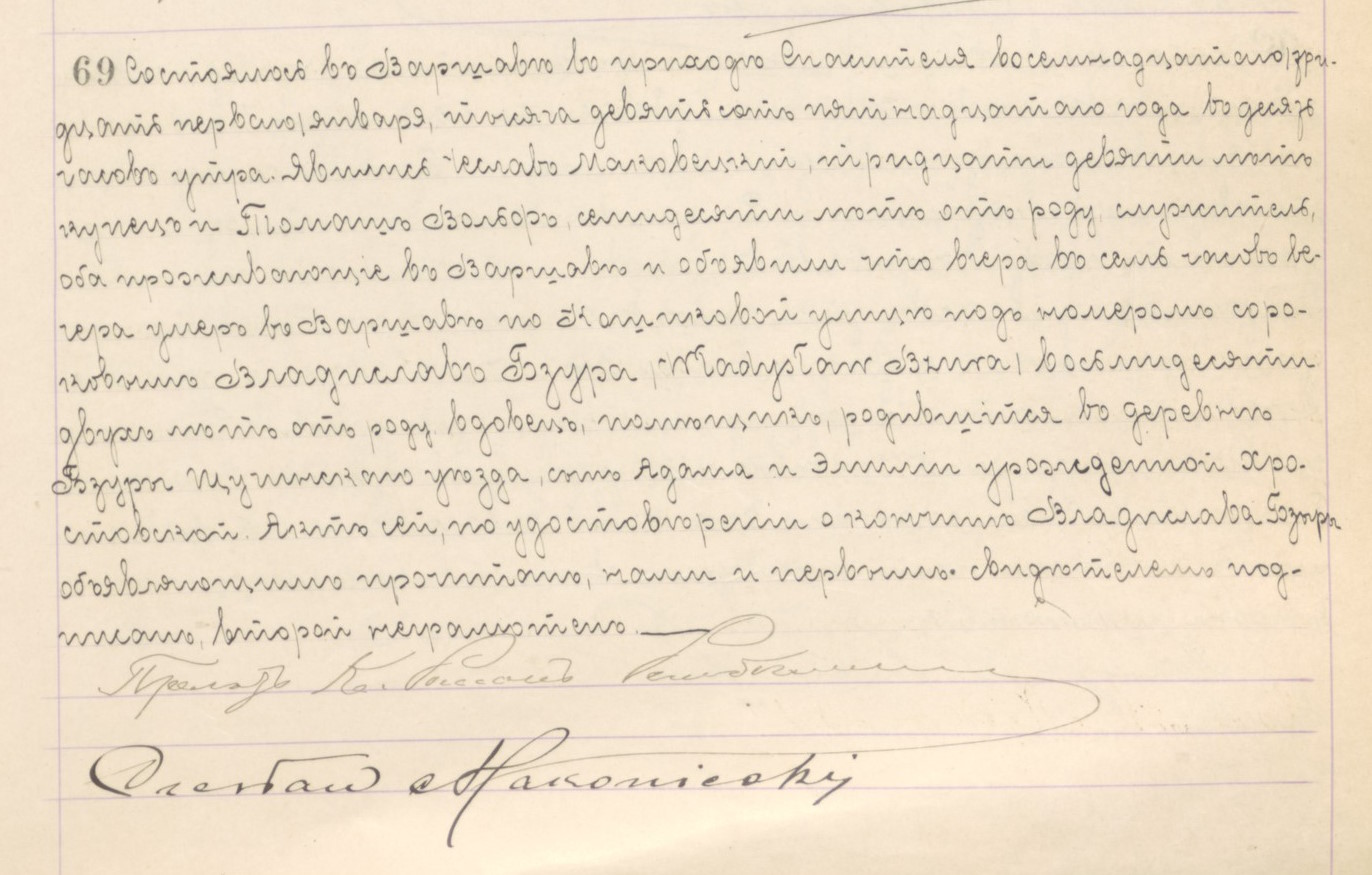 69 Состоялось въ Варшавѣ въ приходѣ Спасителя восемнадцатаго /три-
дцать перваго/ января, тысяча девятьсотъ пятнадцатаго года въ десять
часовъ утра. Явились Чеславъ Маковецкий, тридцати девяти лѣтъ
купецъ и Томашъ Вольборъ, семидесяти лѣтъ отъ роду, служитель,
оба проживающiе въ Варшавѣ и объявили что вчера въ семь часовъ ве-
чера умеръ въ Варшавѣ по Кошиковой улицѣ подъ номеромъ соро-
ковымъ Владиславъ Бзура /Władysław Bzura/ восьмидесяти
двухъ лѣтъ отъ роду, вдовецъ, помѣщикъ, родившiйся въ деревнѣ
Бзуры Щучинскаго уѣзда, сынъ Адама и Эмилiи урожденной Хро-
стовской. Актъ сей, по удостовѣренiи о кончинѣ Владислава Бзуры
объявляющимъ прочитанъ, нами и первымъ свидѣтелемъ под-
писанъ, второй неграмотенъ.
Прелатъ Кс.
Czesław Makowiecki